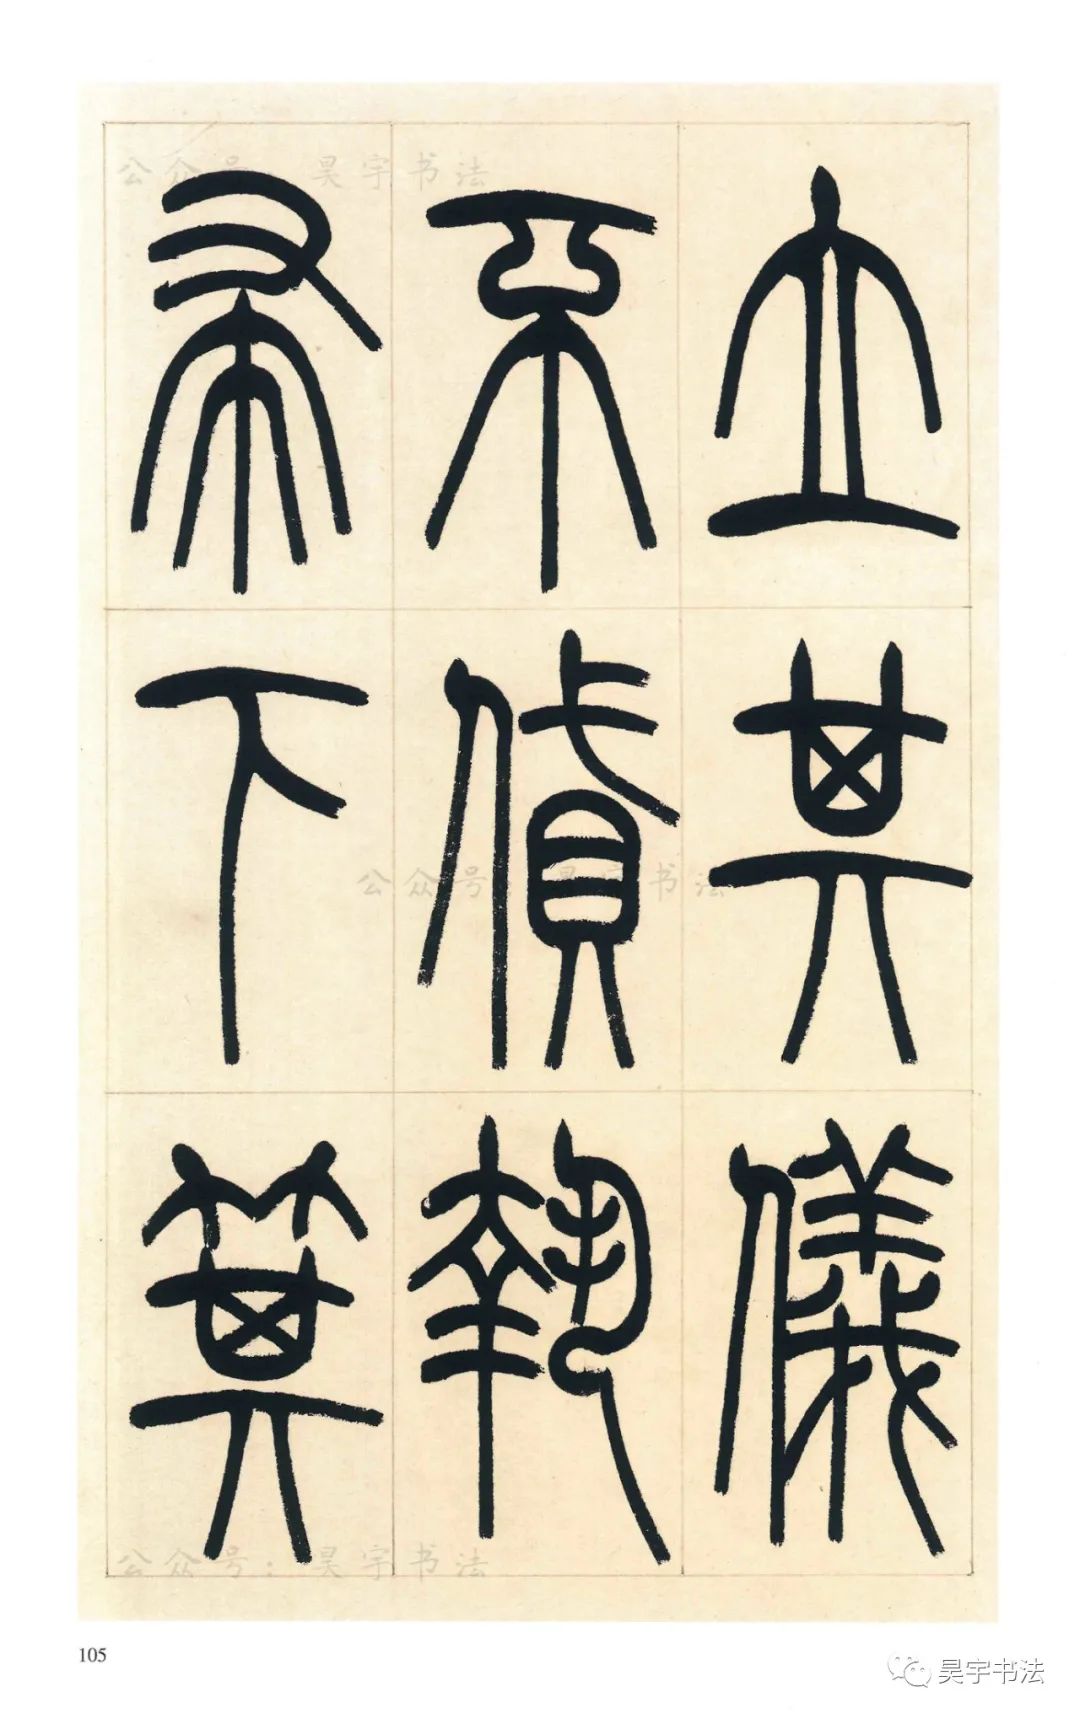 立其儀
不貸執
帚下箕
公众号：昊宇书法
公众号：昊宇书法
公众号：昊宇书法
105
昊宇书法